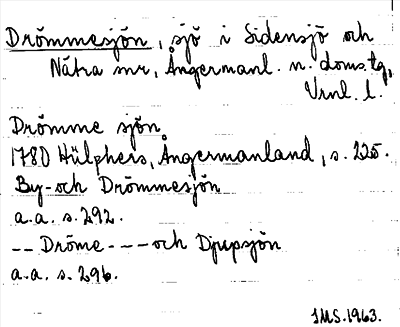 Drömmesjön, sjö i Sidensjö och
Nätra snr, Ångermanl. n. doms.tg,
Vrnl. l.
Drömme sjön
1780 Hülphers, Ångermanland, s. 225.
By- och Drömmesjön
a.a. s. 292.
-- Dröme - - - och Djupsjön
a.a. s. 296.
IMS. 1963.